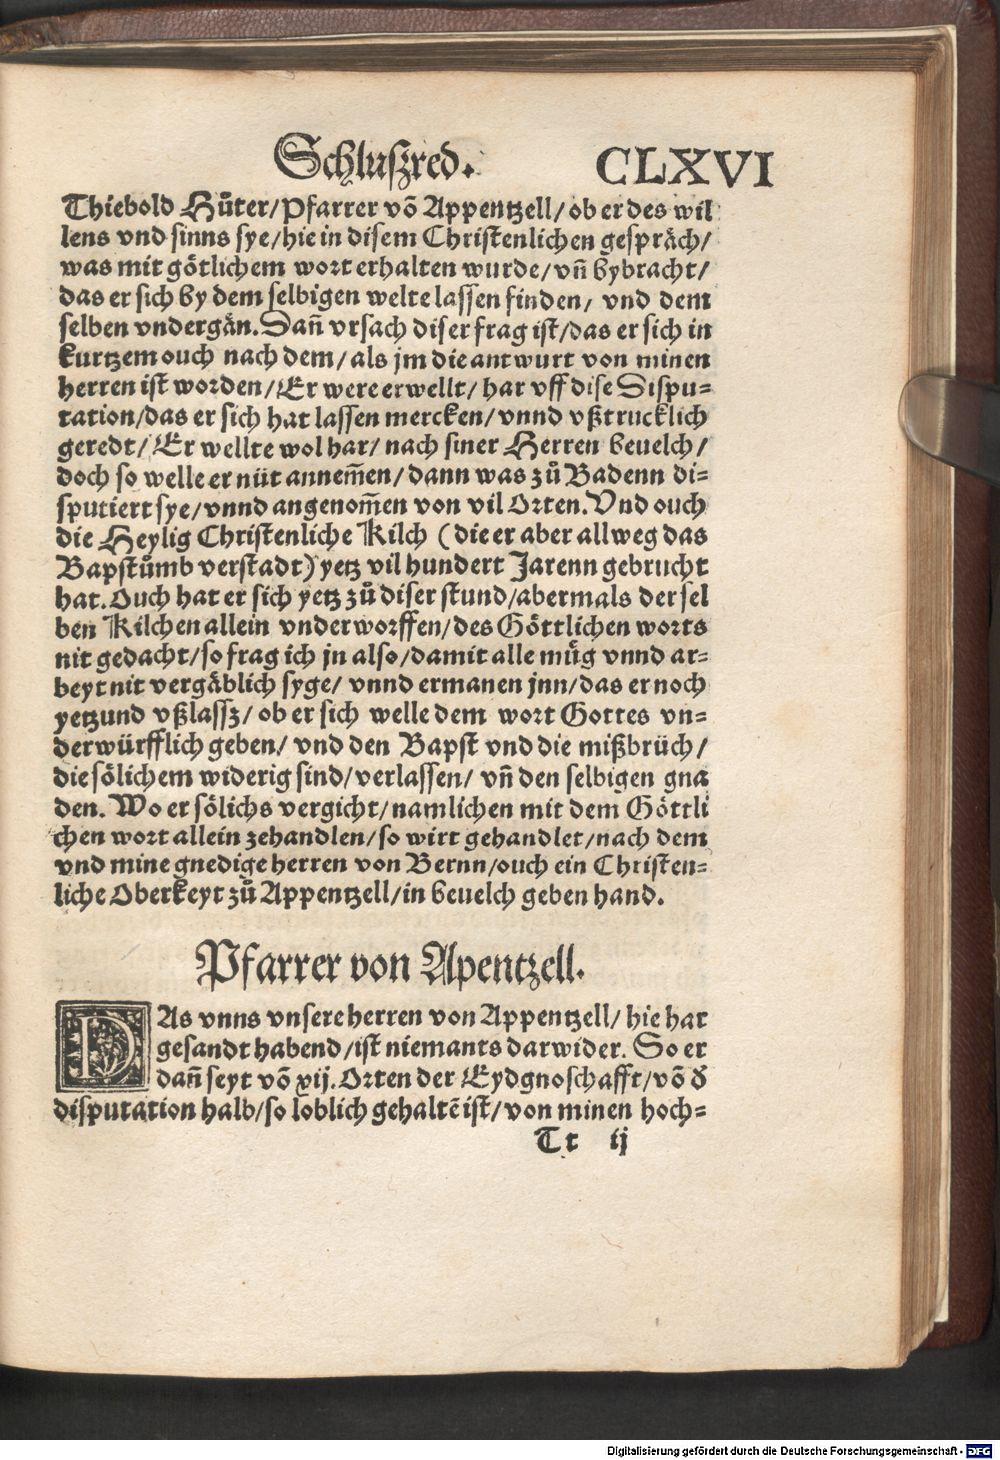 Schluszred. CLXVI
Thiebold Hůter/Pfarrer võ Appentzell/ob er des wil
lens vnd sinns sye/hie in disem Christenlichen gespräch/
was mit götlichem wort erhalten wurde/vñ bybracht/
das er sich by dem selbigen welte lassen finden/ vnd dem
selben vndergän. Dañ vrsach diser frag ist/das er sich in
kurtzem ouch nach dem/als jm die antwurt von minen
herren ist worden/Er were erwellt/har vff dise Dispu-
tation/das er sich hat lassen mercken/vnnd vßtrucklich
geredt/Er wellte wol har/nach siner Herren beuelch/
doch so welle er nüt annem̃en/dann was zů Badenn di-
sputiert sye/vnnd angenom̃en von vil Orten. Vnd ouch
die Heylig Christenliche Kilch (die er aber allweg das
Bapstůmb verstadt) yetz vil hundert Jarenn gebrucht
hat. Ouch hat er sich yetz zů diser stund/abermals der sel
ben Kilchen allein vnderworffen/des Göttlichen worts
nit gedacht/so frag ich jn also/damit alle müg vnnd ar-
beyt nit vergäblich syge/ vnnd ermanen jnn/das er noch
yetzund vßlassz/ob er sich welle dem wort Gottes vn-
derwürfflich geben/ vnd den Bapst vnd die mißbrüch/
die sölichem widerig sind/verlassen/ vñ den selbigen gna
den. Wo er sölichs vergicht/namlichen mit dem Göttli
chen wort allein zehandlen/so wirt gehandlet/nach dem
vnd mine gnedige herren von Bernn/ouch ein Christen-
liche Oberkeyt zů Appentzell/in beuelch geben hand.
Pfarrer von Apentzell.
DAs vnns vnsere herren von Appentzell/hie har
gesandt habend/ist niemants darwider. So er
dañ seyt võ xij. Orten der Eydgnoschafft/võ d̕
disputation halb/so loblich gehaltẽ ist/von minen hoch-
Tt ij
Digitalisierung gefördert durch die Deutsche Forschungsgemeinschaft - DFG